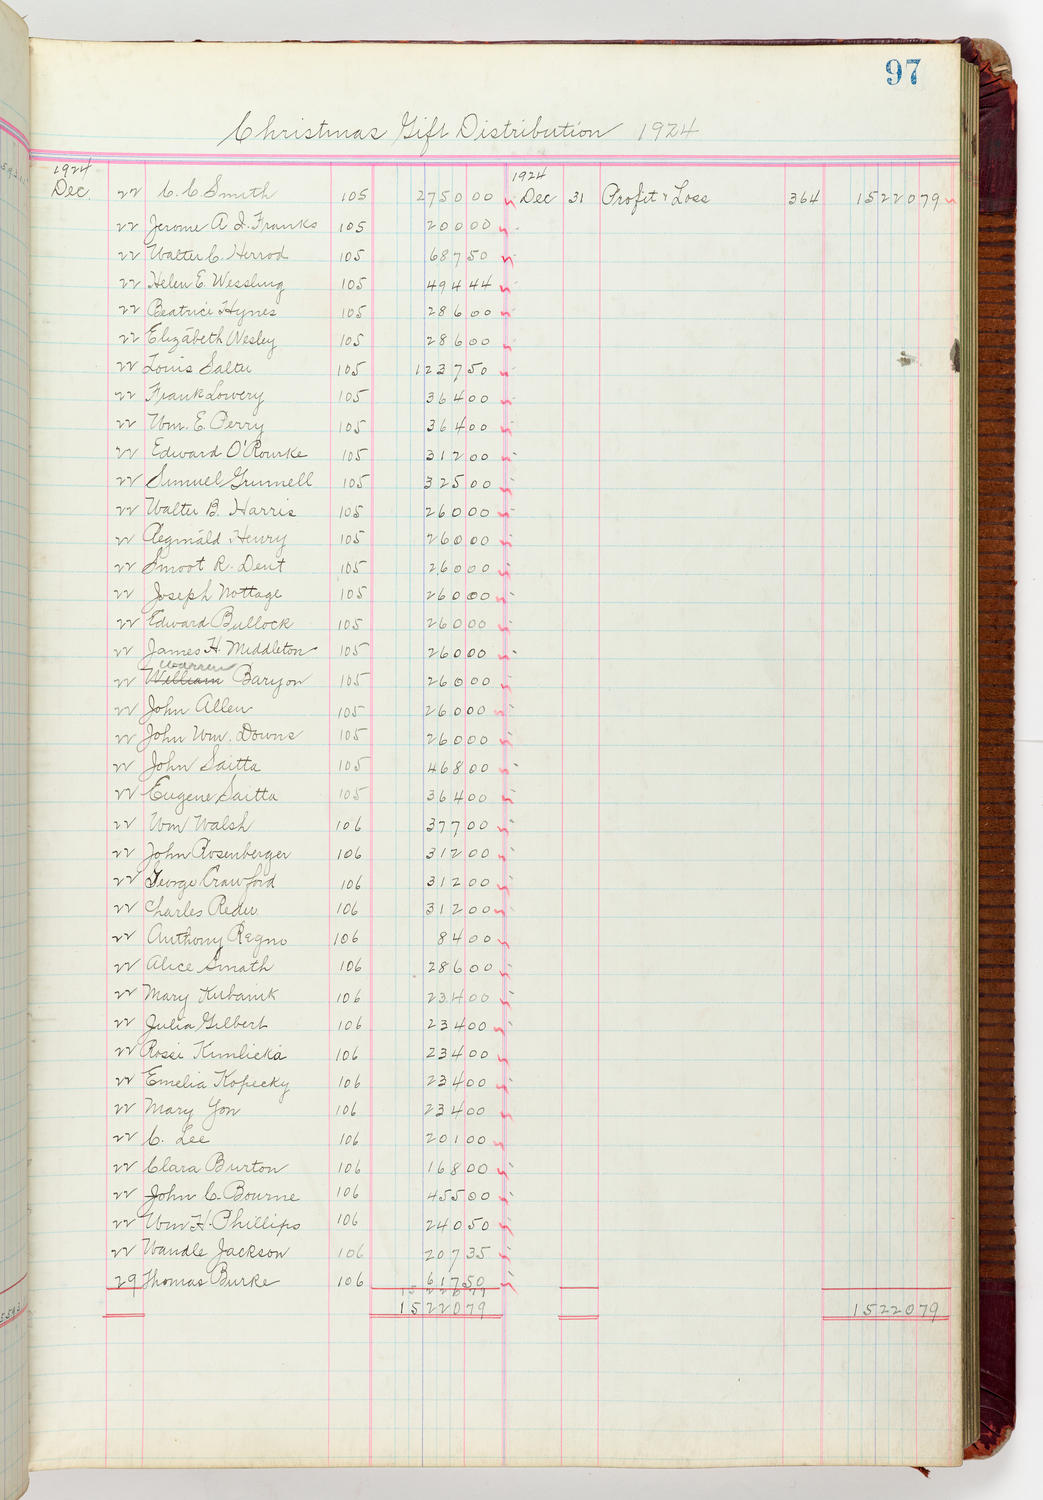 97
Christmas Gift Distribution 1924
1924 1924
Dec. 22 C. C. Smith 105 2750 00 Dec 31 Profit & Loss 364 15220 79
22 Jerome A. I. Franks 105 200 00
22 Walter C. Herrod 105 687 50
22 Helen E. Wessling 105 494 44
22 Beatrice Hynes 105 286 00
22 Elizabeth Wesley 105 286 00
22 Louis Salter 105 1237 50
22 Frank Lowery 105 364 00
22 Wm. E. Perry 105 364 00
22 Edward O'Rourke 105 312 00
22 Samuel Grinnell 105 325 00
22 Walter B. Harris 105 260 00
22 Reginald Henry 105 260 00
22 Smoot R. Dent 105 260 00
22 Joseph Nottage 105 260 00
22 Edward Bullock 105 260 00
22 James H. Middleton 105 260 00
Warren
22 William Baryon 105 260 00
22 John Allen 105 260 00
22 John Wm. Downs 105 260 00
22 John Saitta 105 468 00
22 Eugene Saitta 105 364 00
22 Wm Walsh 106 377 00
22 John Rosenberger 106 312 00
22 George Crawford 106 312 00
22 Charles Reder 106 312 00
22 Anthony Regno 106 84 00
22 Alice Smath 106 286 00
22 Mary Kubanik 106 234 00
22 Julia Gilbert 106 234 00
22 Rosei Kimlicka 106 234 00
22 Emelia Kopecky 106 234 00
22 Mary Yon 106 234 00
22 C. Lee 106 201 00
22 Clara Burton 106 168 00
22 John C. Bourne 106 455 00
22 Wm H. Phillips 106 240 50
22 Wandle Jackson 106 207 35
29 Thomas Burke 106 617 50
15220 79
15220 79 15220 79